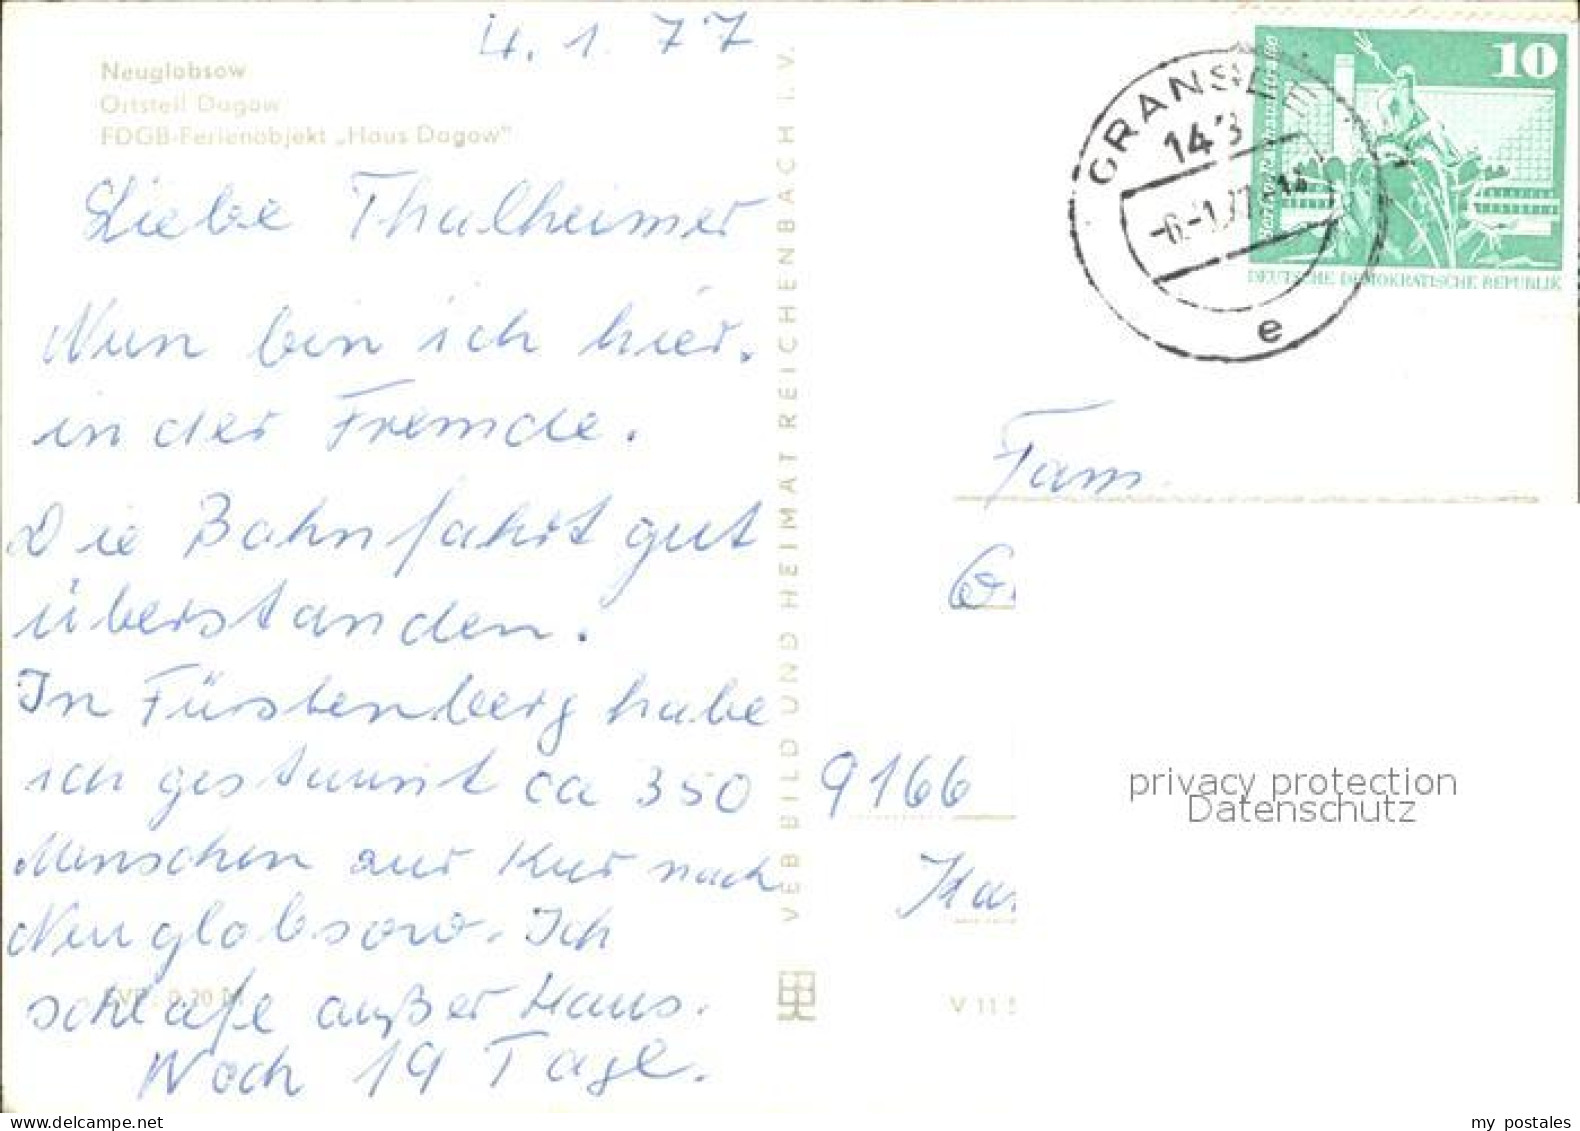 4. 1. 77
Neuglobsow
Ortsteil Dagow
FDGB-Ferienobjekt „Haus Dagow"
Liebe Thalheimer
Nun bin ich hier.
in der Fremde.
Die Bahnfahrt gut
überstanden.
In Fürstenberg habe
ich gestaunt ca 350
Menschen zur Kur nach
Neuglobsow. Ich
schlafe außer Haus.
Noch 19 Tage.
EVP 0,20 M
VEB BILD UND HEIMAT REICHENBACH I. V.
GRANSEE
143
-6.-1.77
e
10
DEUTSCHE DEMOKRATISCHE REPUBLIK
Fam.
9166
V 11 5
privacy protection
Datenschutz
my postales